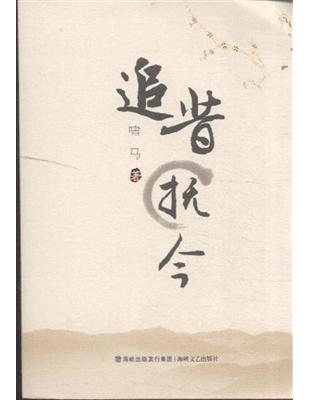 追昔
抚今
啸马
著
海峡出版发行集团 | 海峡文艺出版社